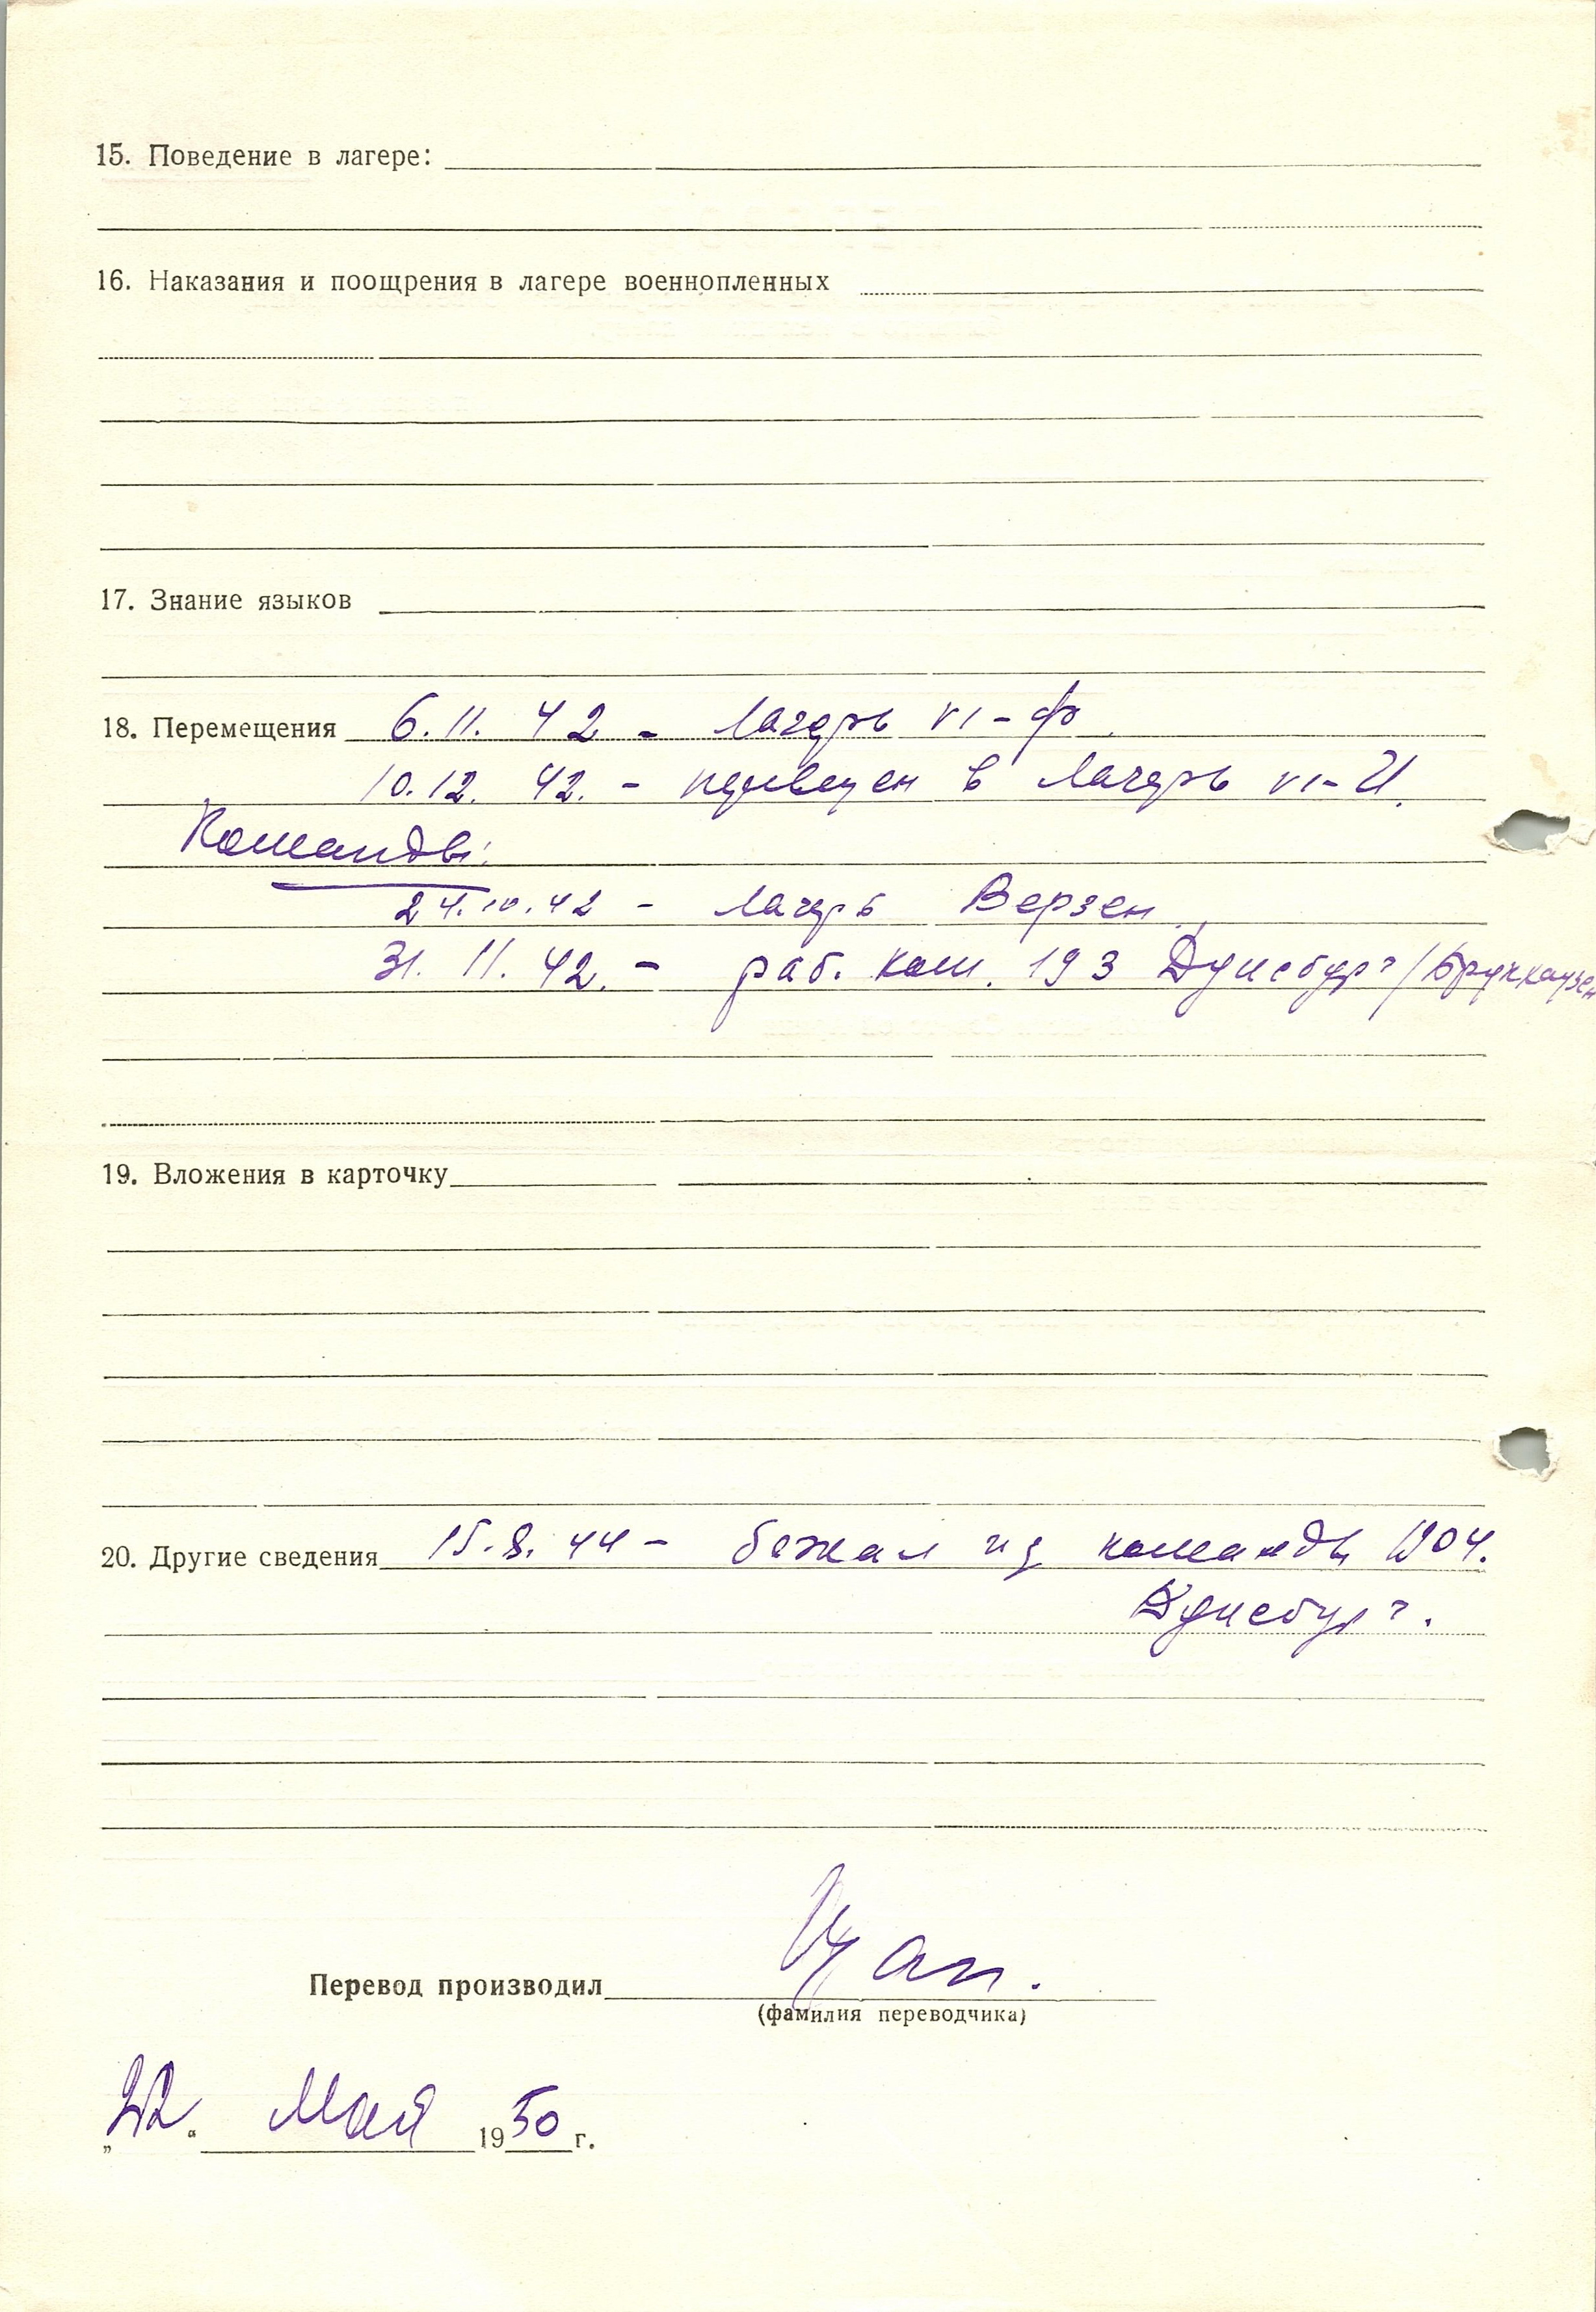 15. Поведение в лагере:
16. Наказания и поощрения в лагере военнопленных
17. Знание языков
18. Перемещения 6.11.42 - лагерь VI-Ф
10.12.42. - переведен в лагерь VI-И.
Команды:
24.10.42 - лагерь Верзен
31.11.42. - раб. ком. 193 Дуисбург/Брукхаузен
19. Вложения в карточку
20. Другие сведения 15.8.44 - бежал из команды 1904.
Дуисбург.
Перевод производил
(фамилия переводчика)
„22“ Мая 1950 г.